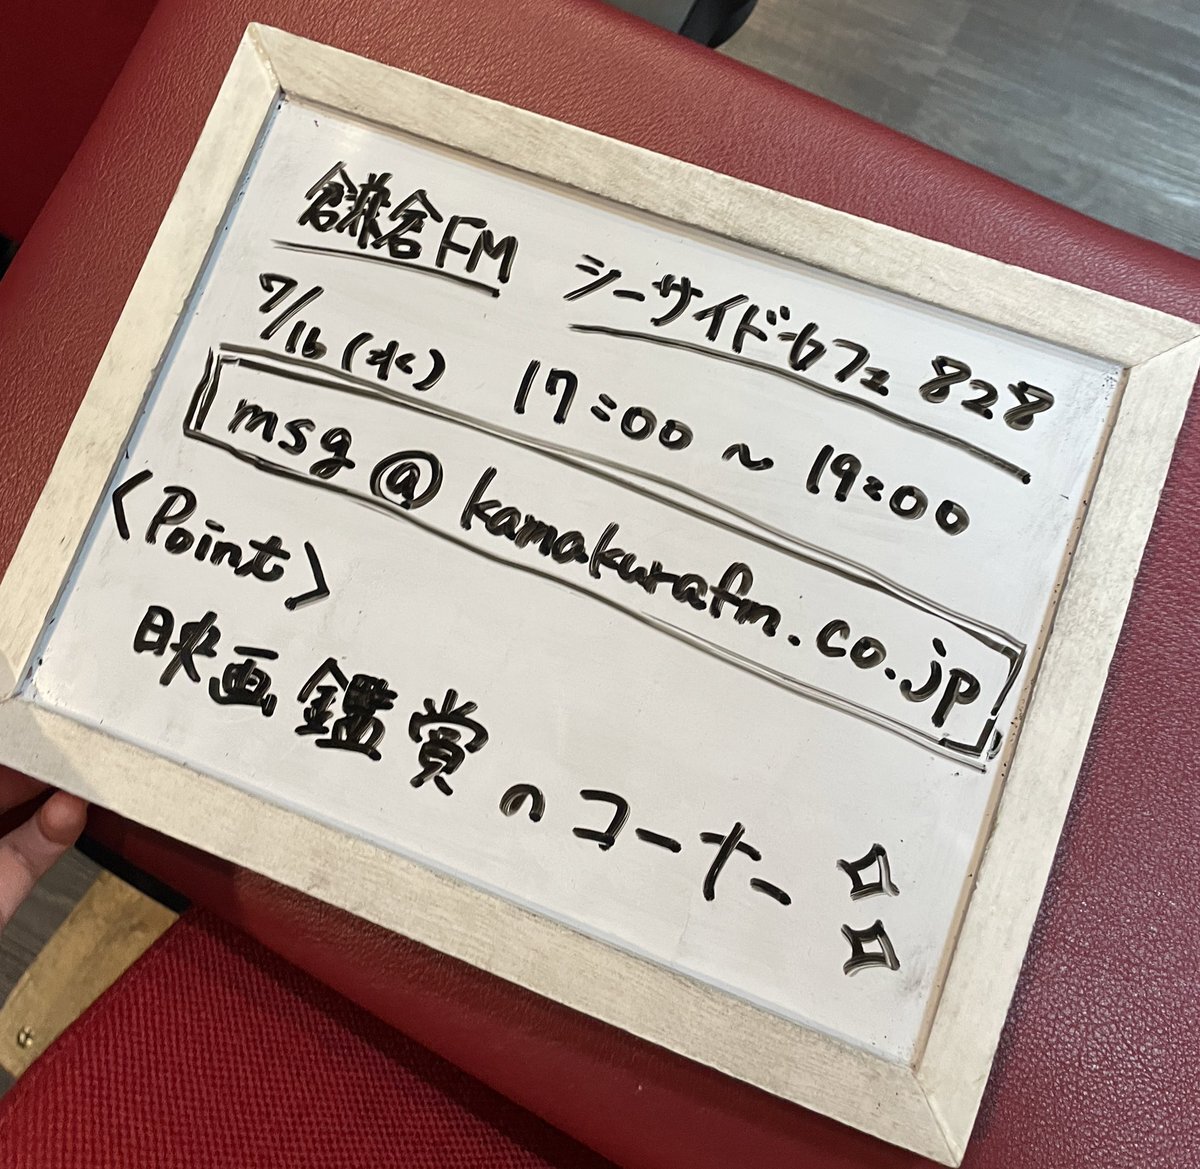 鎌倉FM シーサイドカフェ 828
7/16(水) 17:00~19:00
msg@kamakurafm.co.jp
<Point>
映画鑑賞のコーナー